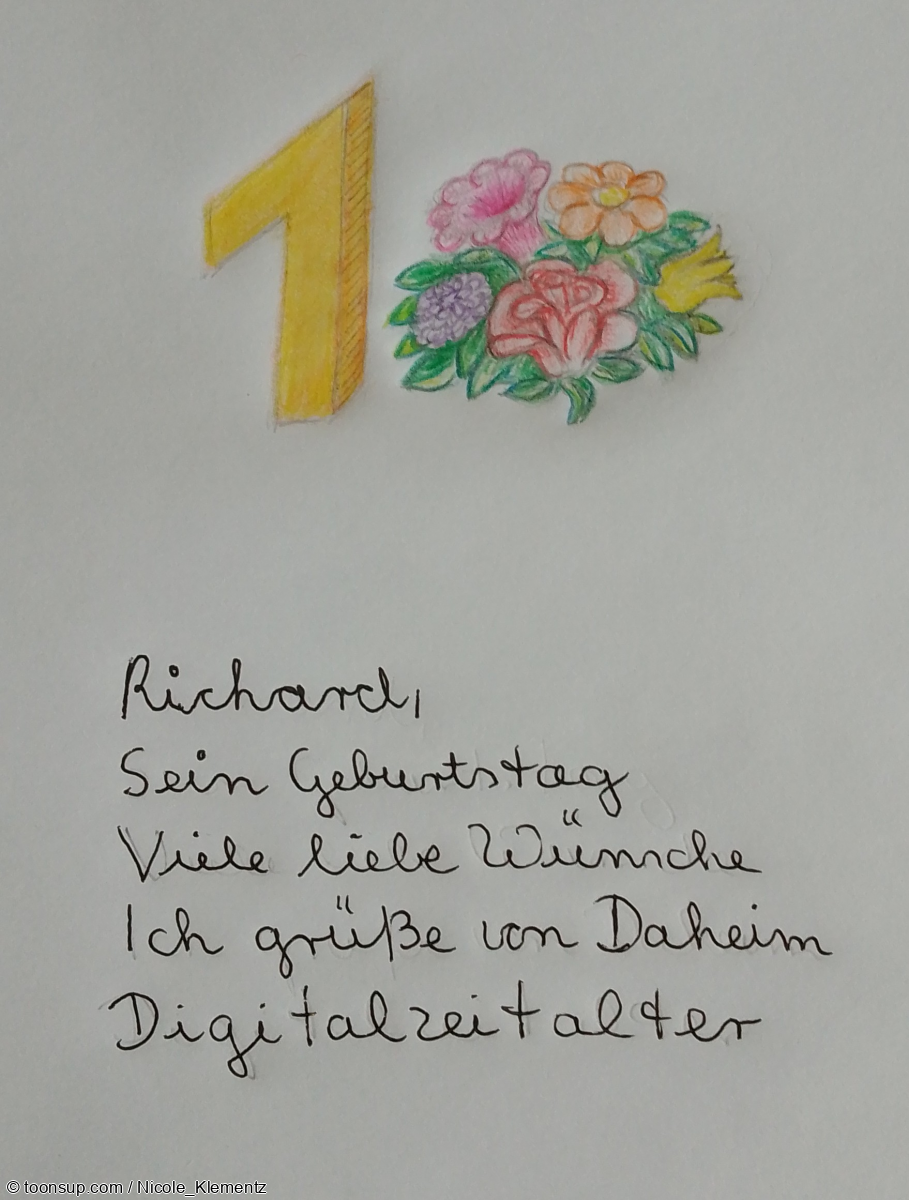 1
Richard,
Sein Geburtstag
Viele liebe Wünsche
Ich grüße von Daheim
Digitalzeitalter
© toonsup.com / Nicole_Klementz